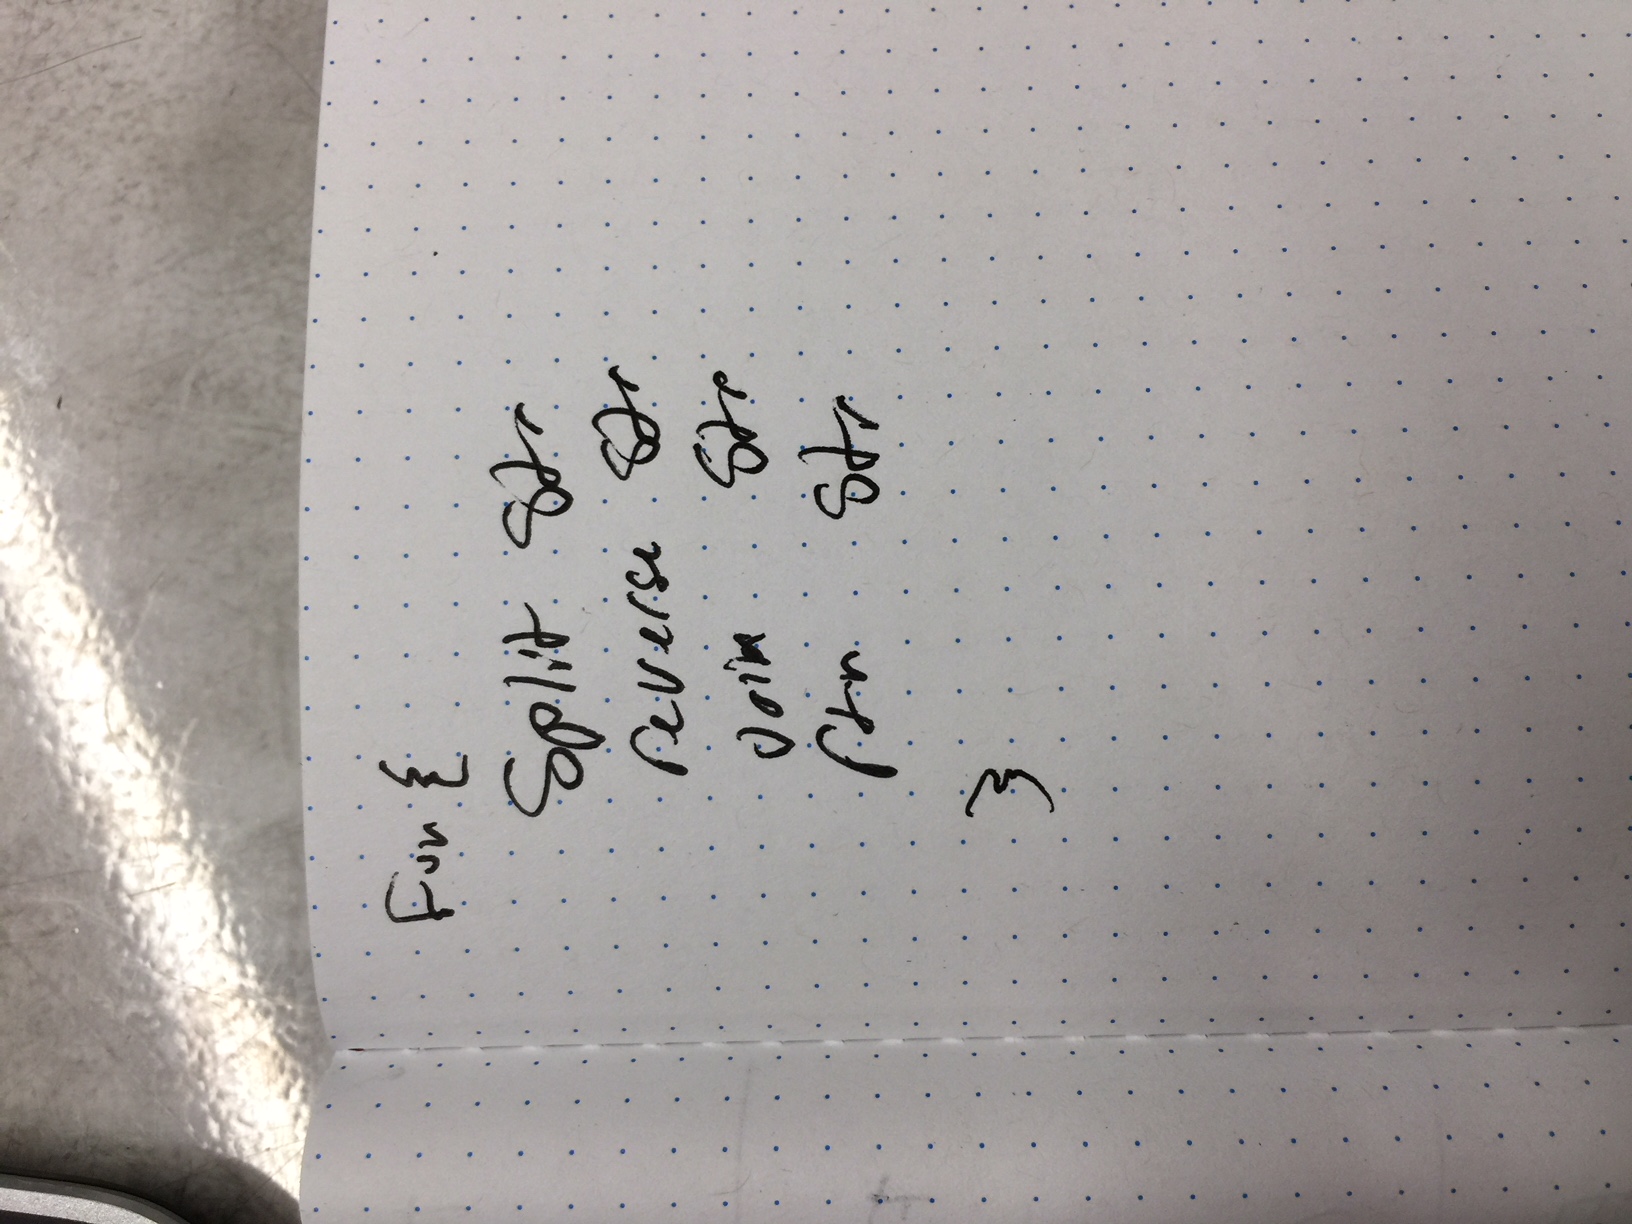 Fun {
Split Str
reverse Str
Join Str
rtn Str
}